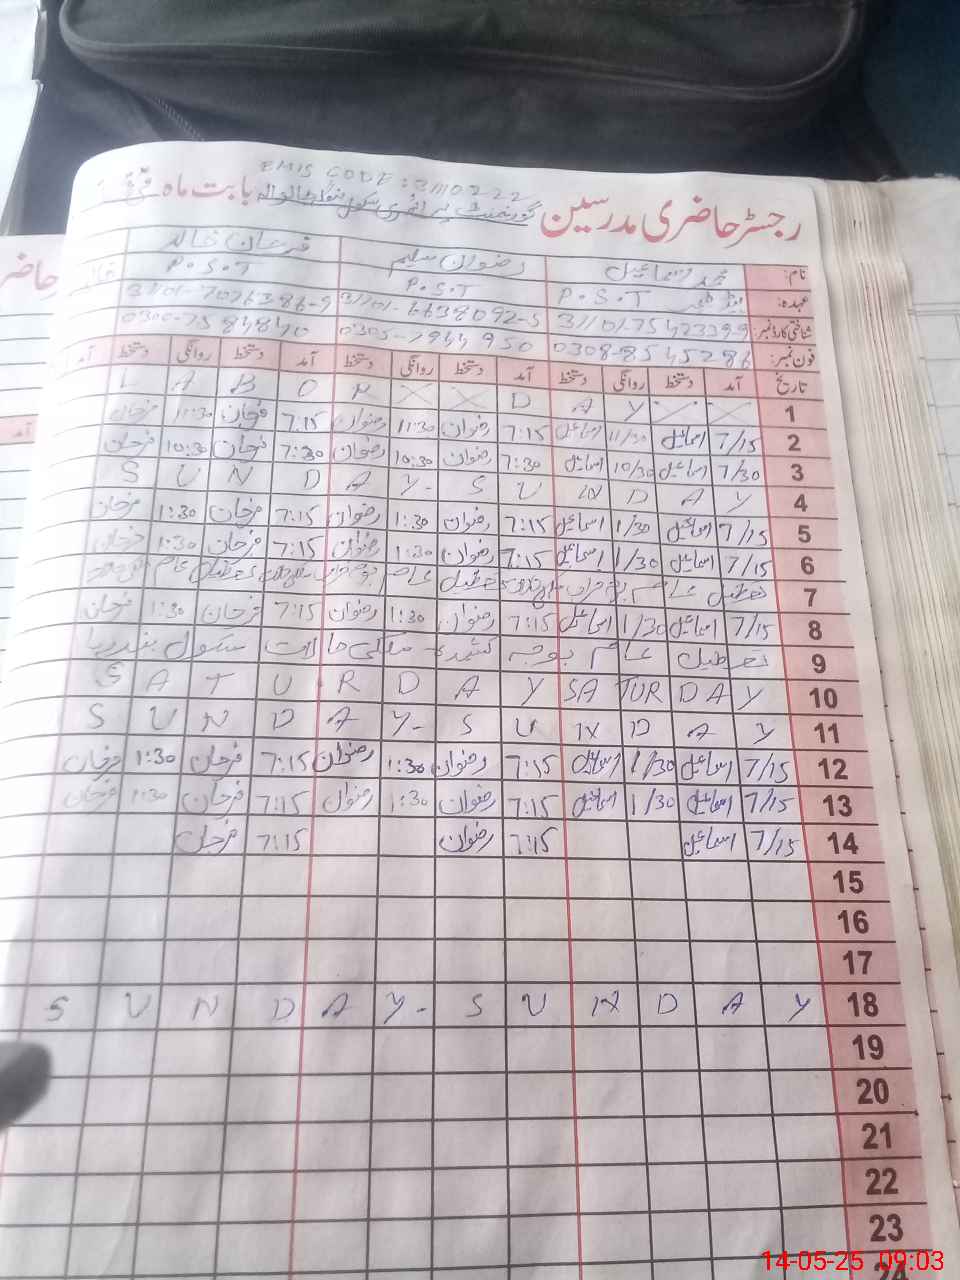 EMIS CODE : 3110222
رجسٹر حاضری مدرسین گورنمنٹ پرائمری سکول بابت ماہ
نام: محمد اسماعیل رضوان سلیم فرحان خالد
عہدہ: P.S.T P.S.T P.S.T
شناختی کارڈ نمبر: 31101-6638092-5 31101-7076386-9
فون نمبر: 0308-8545286 0305-7944950 0300-7584840
تاریخ آمد دستخط روانگی دستخط آمد دستخط روانگی دستخط آمد دستخط روانگی دستخط آمد
1 L A B O R D A Y
2 7/15 اسماعیل 11/30 اسماعیل 7:15 رضوان 11:30 رضوان 7:15 فرحان 11:30 فرحان
3 7/30 اسماعیل 10/30 اسماعیل 7:30 رضوان 10:30 رضوان 7:30 فرحان 10:30 فرحان
4 S U N D A Y - S U N D A Y
5 7/15 اسماعیل 1/30 اسماعیل 7:15 رضوان 1:30 رضوان 7:15 فرحان 1:30 فرحان
6 7/15 اسماعیل 1/30 اسماعیل 7:15 رضوان 1:30 رضوان 7:15 فرحان 1:30 فرحان
7 تعطیل عام بوجہ
8 7/15 اسماعیل 1/30 اسماعیل 7:15 رضوان 1:30 رضوان 7:15 فرحان 1:30 فرحان
9 تعطیل عام بوجہ کشیدگی ملکی حالات سکول بند رہا
10 S A T U R D A Y SA TUR D A Y
11 S U N D A Y - S U N D A Y
12 7/15 اسماعیل 1/30 اسماعیل 7:15 رضوان 1:30 رضوان 7:15 فرحان 1:30 فرحان
13 7/15 اسماعیل 1/30 اسماعیل 7:15 رضوان 1:30 رضوان 7:15 فرحان 1:30 فرحان
14 7/15 اسماعیل 7:15 رضوان 7:15 فرحان
15
16
17
18 S U N D A Y - S U N D A Y
19
20
21
22
23
24
14-05-25 09:03